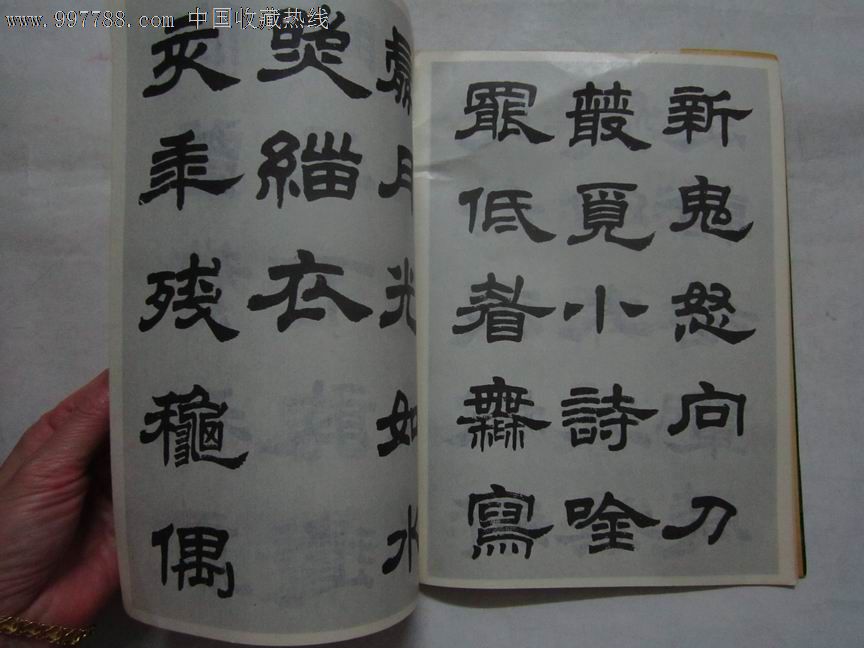 www.997788.com 中国收藏热线
新鬼怒向刀
叢覓小詩唫
罷低眉無寫
處月光如水
照緇衣
亥年残龝偶